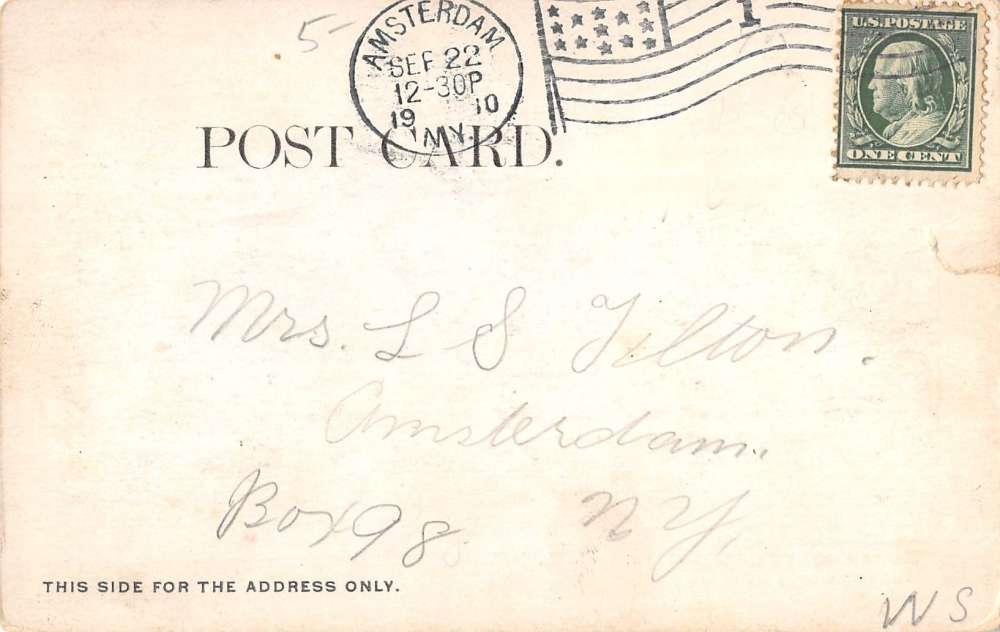 5
AMSTERDAM
SEP 22
12-30P
19 10
N.Y.
1
U.S. POSTAGE
ONE CENT
POST CARD.
Mrs. L S Tilton.
Amsterdam.
Box 98 N Y,
THIS SIDE FOR THE ADDRESS ONLY.
WS